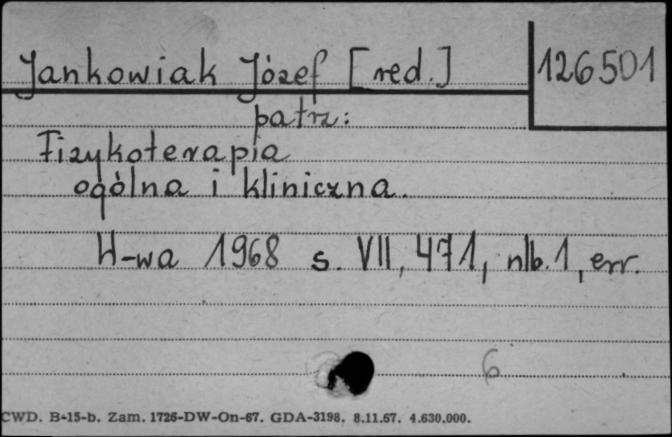 Jankowiak Józef [red.] 126501
patrz:
Fizykoterapia
ogólna i kliniczna.
W-wa 1968 s. VII, 471, nlb. 1, err.
6
CWD. B-15-b. Zam. 1726-DW-On-67. GDA-3198. 8.11.67. 4.630.000.